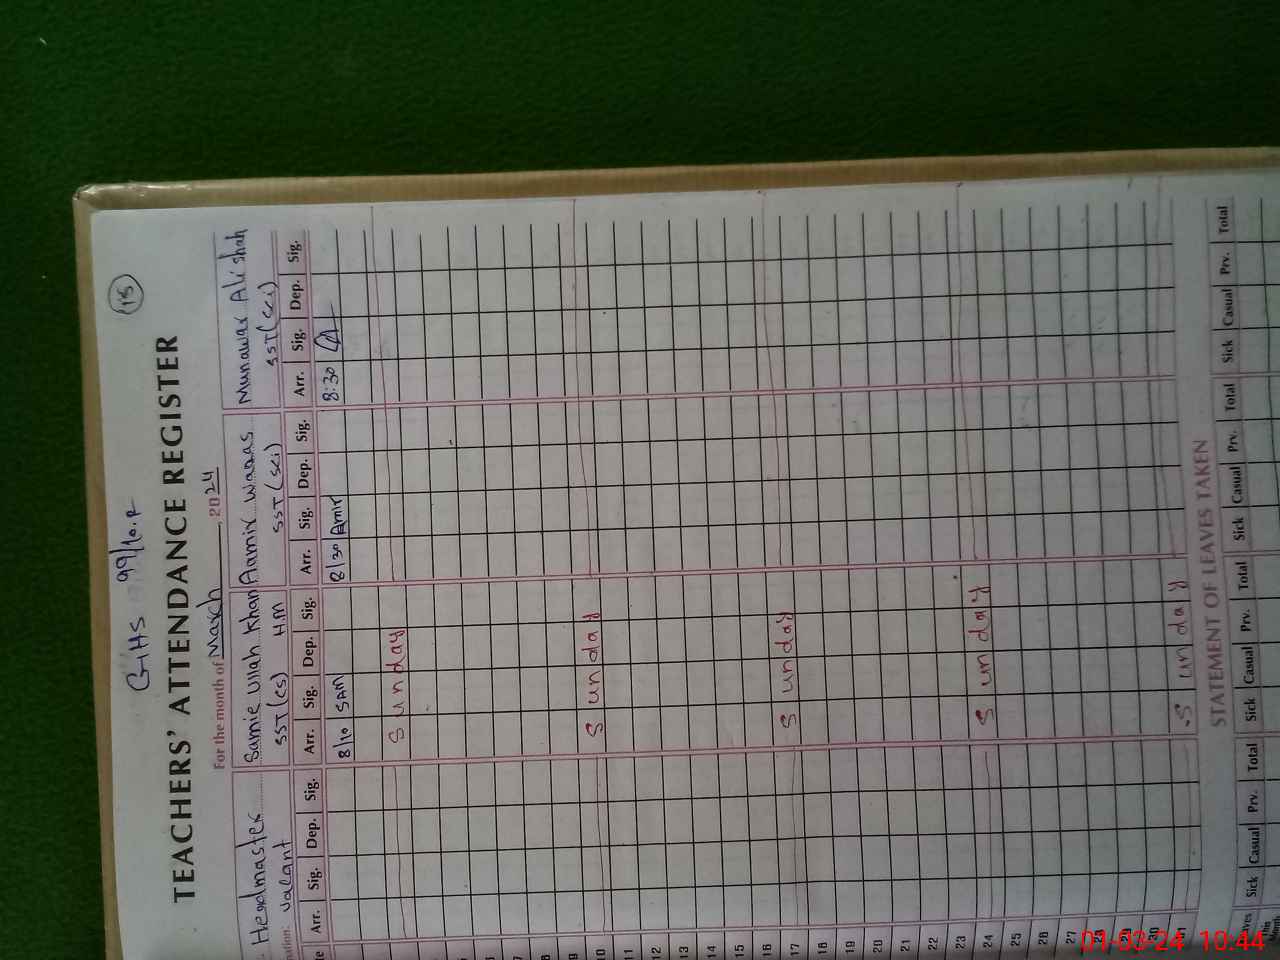 GHS 99/10.R (15)
TEACHERS' ATTENDANCE REGISTER
For the month of March 2024
Headmaster Samie Ullah Khan Aamir Waqas Munawar Ali shah
Vacant SST(CS) H.M SST(Sci) SST(Sci)
Arr. Sig. Dep. Sig. Arr. Sig. Dep. Sig. Arr. Sig. Dep. Sig. Arr. Sig. Dep. Sig.
8/10 SAM 8/30 Amir 8:30
Sunday
10 Sunday
11
12
13
14
15
16
17 Sunday
18
19
20
21
22
23
24 Sunday
25
26
27
28
29
30
Sunday
STATEMENT OF LEAVES TAKEN
Sick Casual Prv. Total Sick Casual Prv. Total Sick Casual Prv. Total Sick Casual Prv. Total
01-03-24 10:44